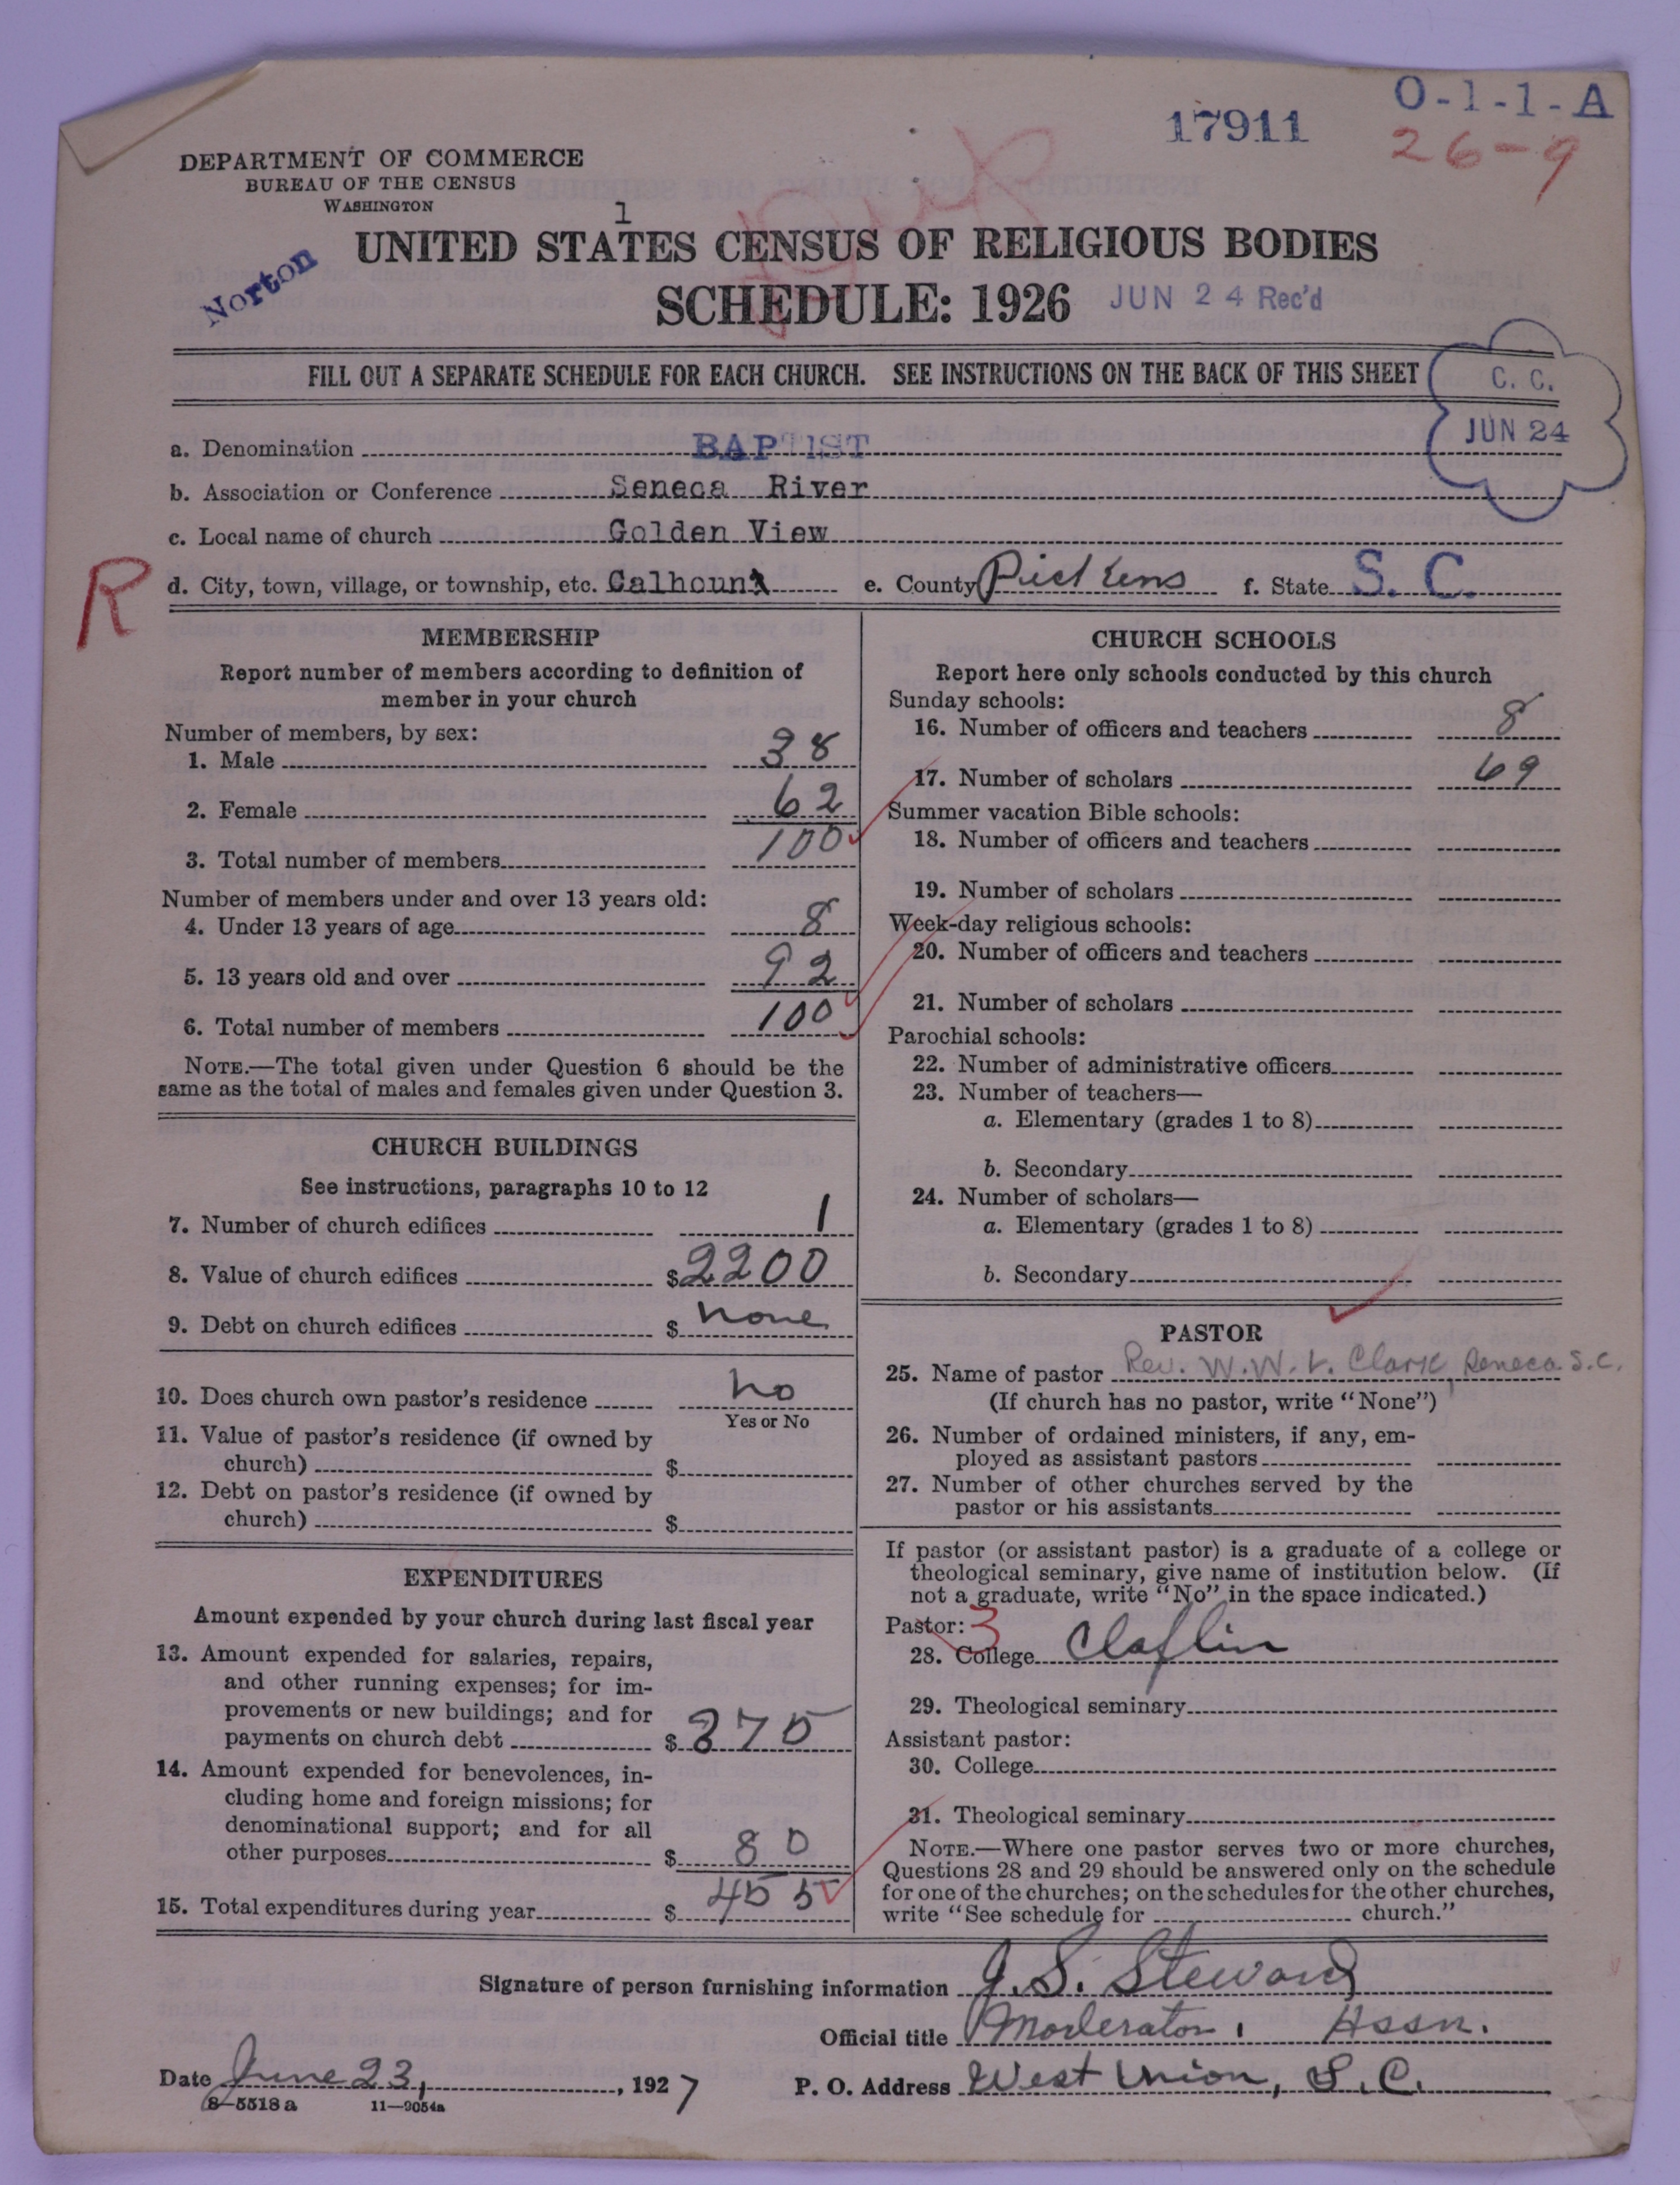 O-1-1-A
17911
26-9
DEPARTMENT OF COMMERCE
BUREAU OF THE CENSUS
WASHINGTON
1
UNITED STATES CENSUS OF RELIGIOUS BODIES
Norton
SCHEDULE: 1926 JUN 24 Rec'd
FILL OUT A SEPARATE SCHEDULE FOR EACH CHURCH. SEE INSTRUCTIONS ON THE BACK OF THIS SHEET
C. C.
JUN 24
a. Denomination BAPTIST
b. Association or Conference Seneca River
c. Local name of church Golden View
R
d. City, town, village, or township, etc. Calhoun e. County Pickens f. State S. C.
MEMBERSHIP
Report number of members according to definition of
member in your church
Number of members, by sex:
1. Male 38
2. Female 62
3. Total number of members 100
Number of members under and over 13 years old:
4. Under 13 years of age 8
5. 13 years old and over 92
6. Total number of members 100
NOTE.—The total given under Question 6 should be the
same as the total of males and females given under Question 3.
CHURCH BUILDINGS
See instructions, paragraphs 10 to 12
7. Number of church edifices 1
8. Value of church edifices $2200
9. Debt on church edifices $ none
10. Does church own pastor's residence no
Yes or No
11. Value of pastor's residence (if owned by
church) $
12. Debt on pastor's residence (if owned by
church) $
EXPENDITURES
Amount expended by your church during last fiscal year
13. Amount expended for salaries, repairs,
and other running expenses; for im-
provements or new buildings; and for
payments on church debt $ 375
14. Amount expended for benevolences, in-
cluding home and foreign missions; for
denominational support; and for all
other purposes $ 80
15. Total expenditures during year $ 455
CHURCH SCHOOLS
Report here only schools conducted by this church
Sunday schools:
16. Number of officers and teachers 8
17. Number of scholars 69
Summer vacation Bible schools:
18. Number of officers and teachers
19. Number of scholars
Week-day religious schools:
20. Number of officers and teachers
21. Number of scholars
Parochial schools:
22. Number of administrative officers
23. Number of teachers—
a. Elementary (grades 1 to 8)
b. Secondary
24. Number of scholars—
a. Elementary (grades 1 to 8)
b. Secondary
PASTOR
25. Name of pastor Rev. W. W. L. Clark, Seneca S.C.
(If church has no pastor, write "None")
26. Number of ordained ministers, if any, em-
ployed as assistant pastors
27. Number of other churches served by the
pastor or his assistants
If pastor (or assistant pastor) is a graduate of a college or
theological seminary, give name of institution below. (If
not a graduate, write "No" in the space indicated.)
Pastor: 3
28. College Claflin
29. Theological seminary
Assistant pastor:
30. College
31. Theological seminary
NOTE.—Where one pastor serves two or more churches,
Questions 28 and 29 should be answered only on the schedule
for one of the churches; on the schedules for the other churches,
write "See schedule for church."
Signature of person furnishing information J. S. Steward
Official title Moderator, Assn.
Date June 23, 1927 P. O. Address West Union, S. C.
8-5518 a 11—9054a